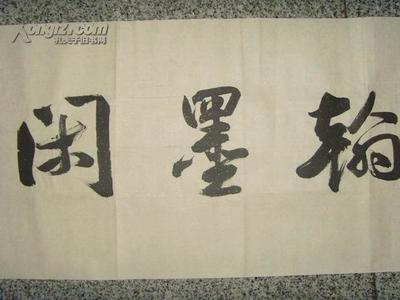 翰墨闲
Kongfz.com
孔夫子旧书网